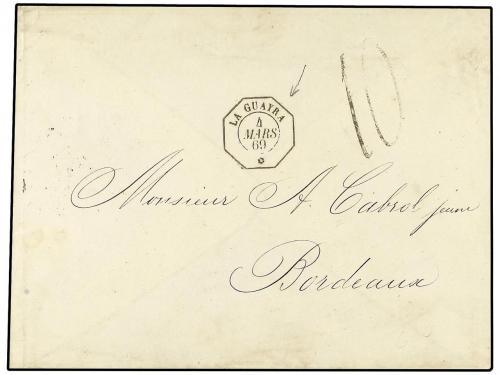 LA GUAYRA
4
MARS
69
10
Monsieur A. Cabrol jeune
Bordeaux